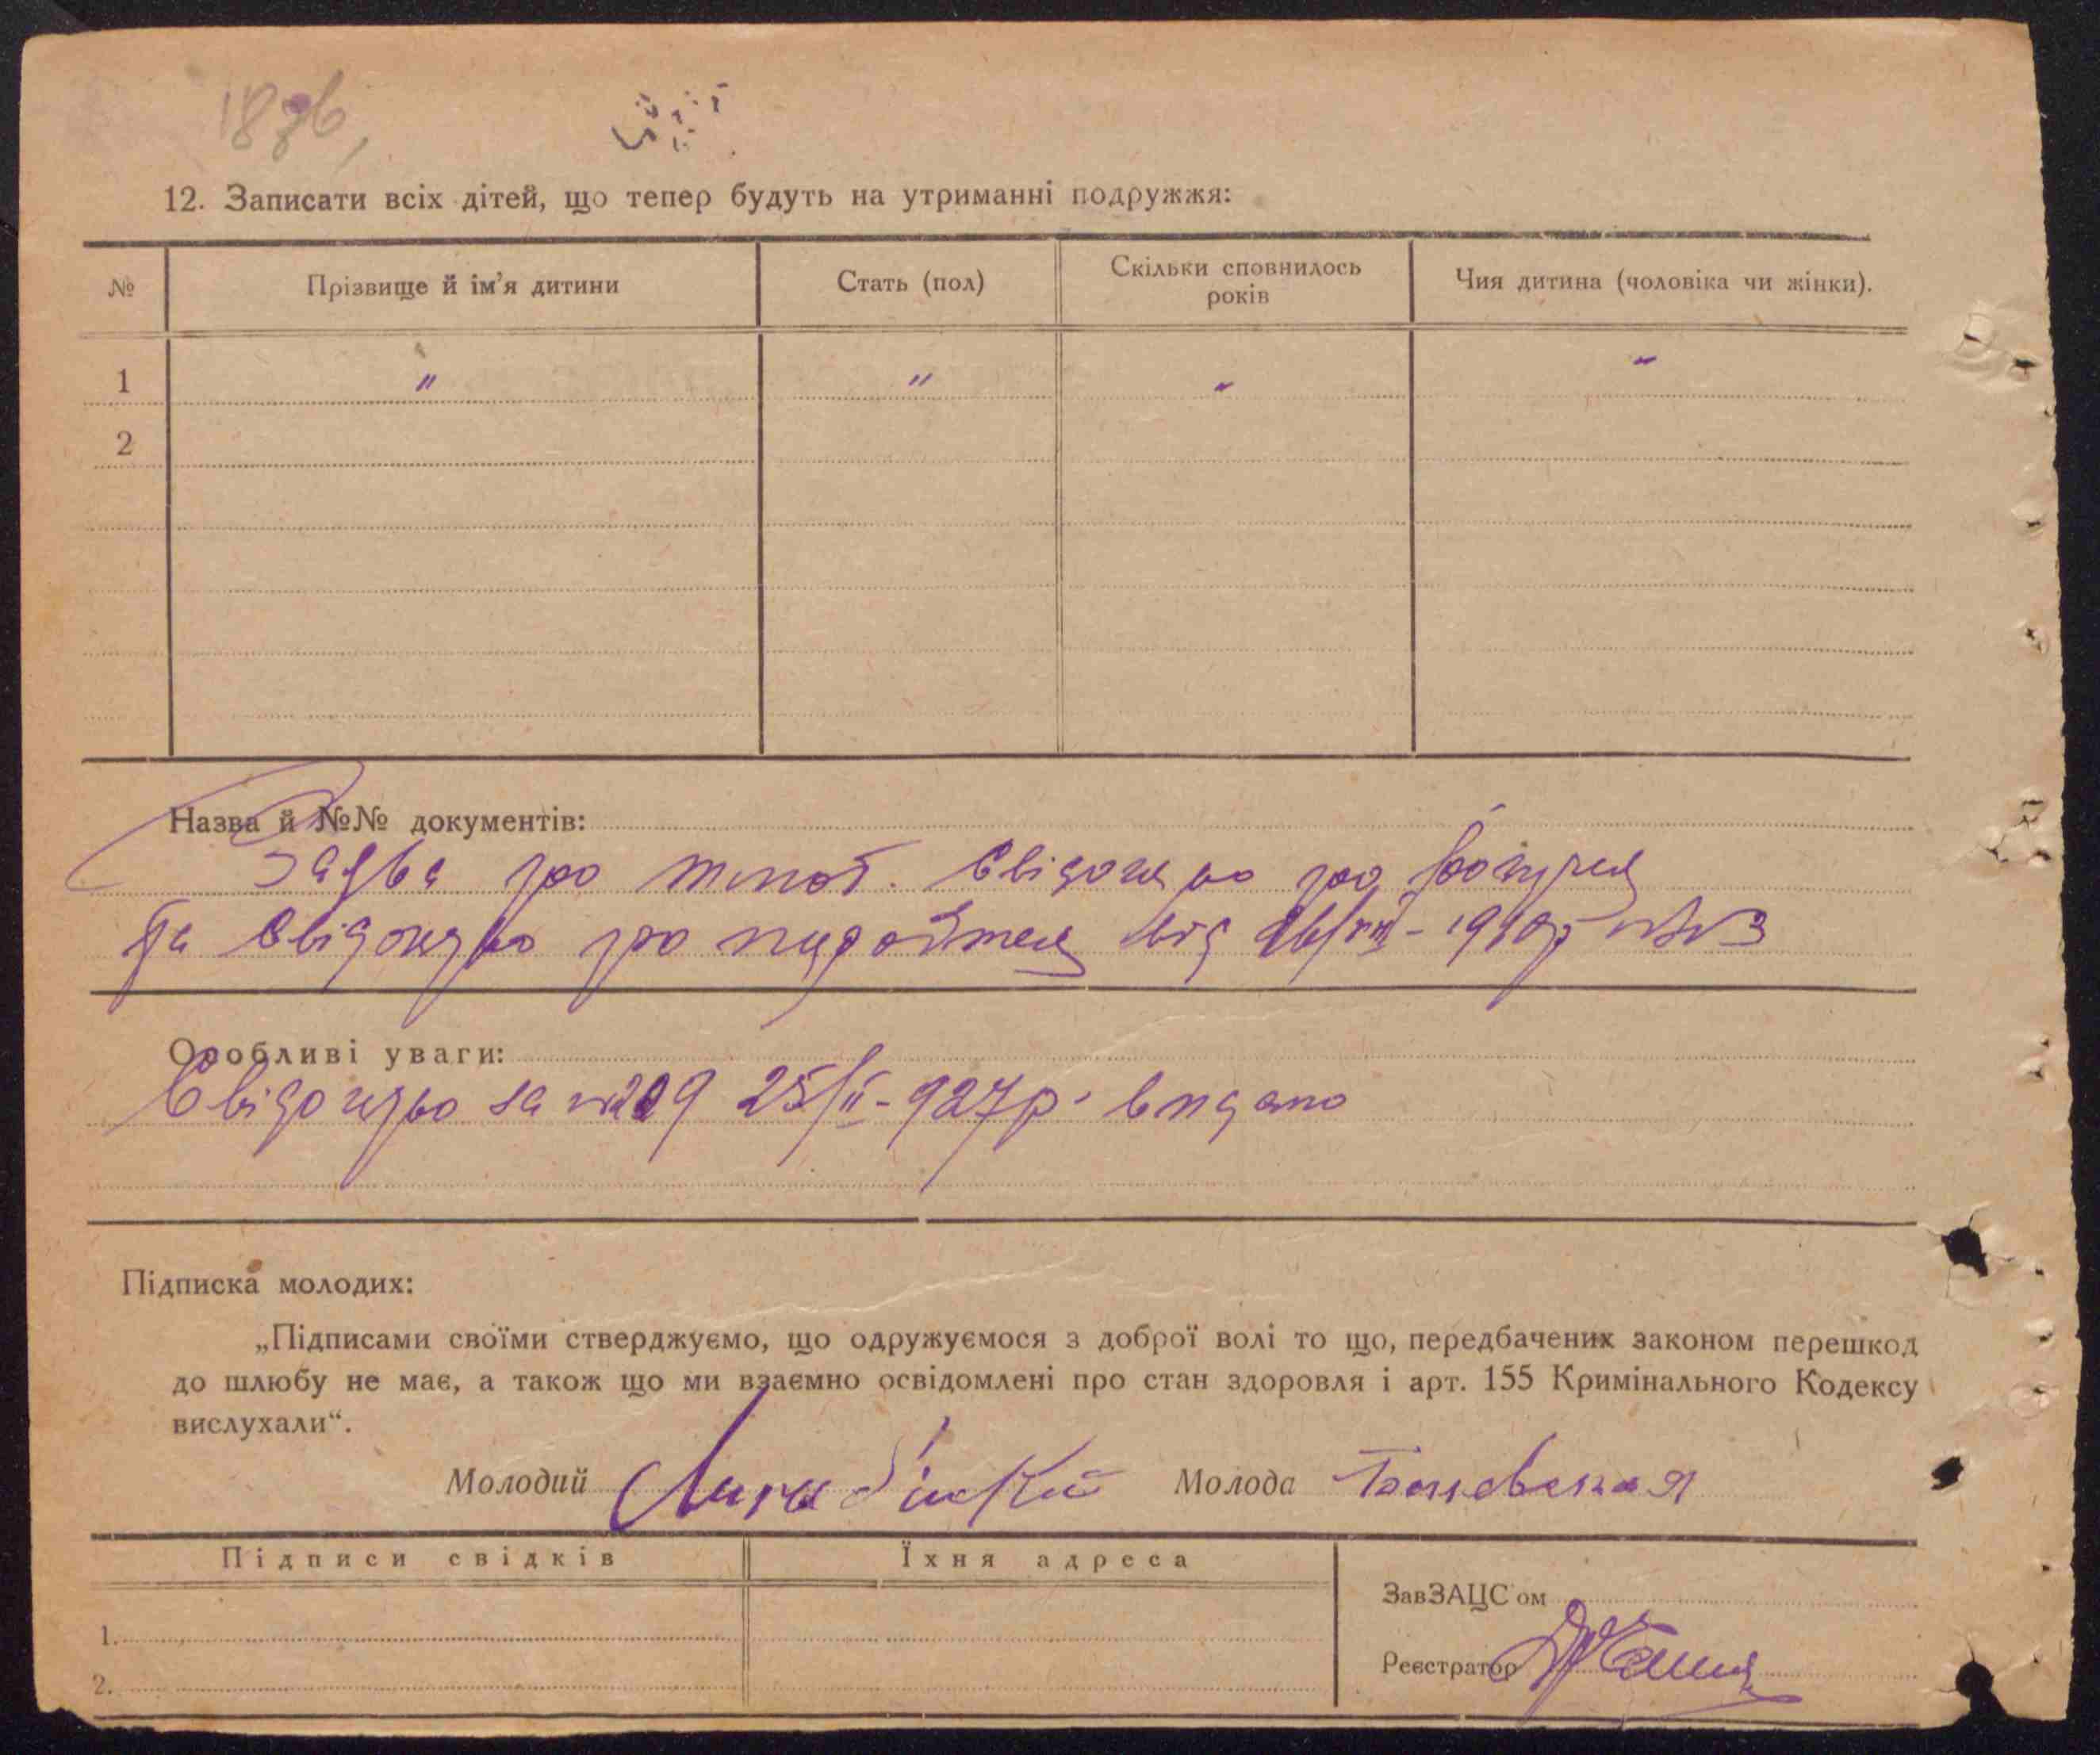 12. Записати всіх дітей, що тепер будуть на утриманні подружжя:
№ Прізвище й ім'я дитини Стать (пол) Скільки сповнилось років Чия дитина (чоловіка чи жінки).
1 " " " "
2
Назва й №№ документів:
Заява про шлюб. Свідоцтво про
та Свідоцтво про від 1910р №3
Особливі уваги:
Свідоцтво за №209 25/II-927р. видано
Підписка молодих:
„Підписами своїми стверджуємо, що одружуємося з доброї волі то що, передбачених законом перешкод
до шлюбу не має, а також що ми взаємно освідомлені про стан здоровля і арт. 155 Кримінального Кодексу
вислухали“.
Молодий Молода
Підписи свідків Їхня адреса
ЗавЗАЦС'ом
1.
Реєстратор
2.